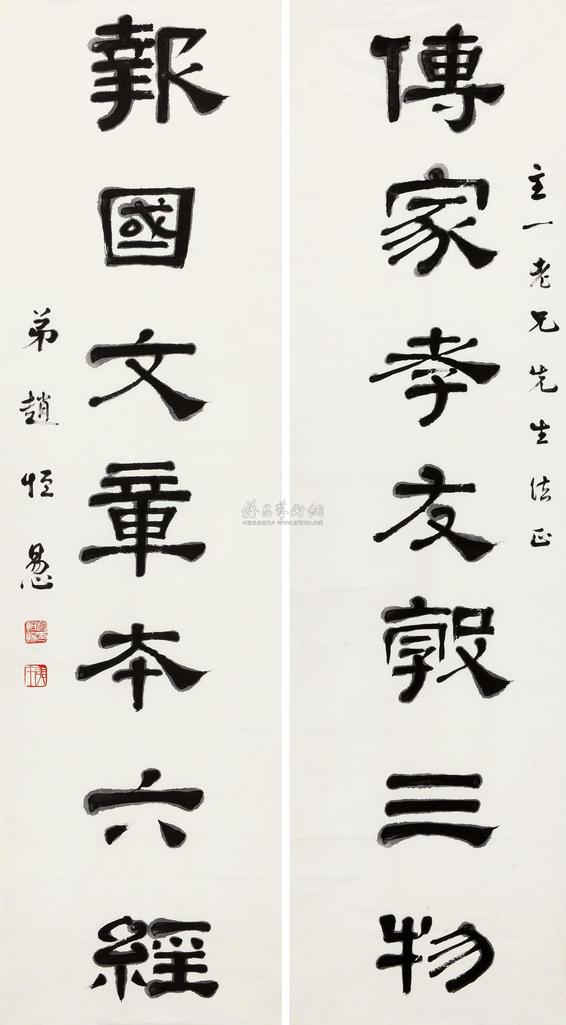 主一老兄先生法正
傳家孝友敦三物
報國文章本六經
弟趙恒惖
www.artron.net